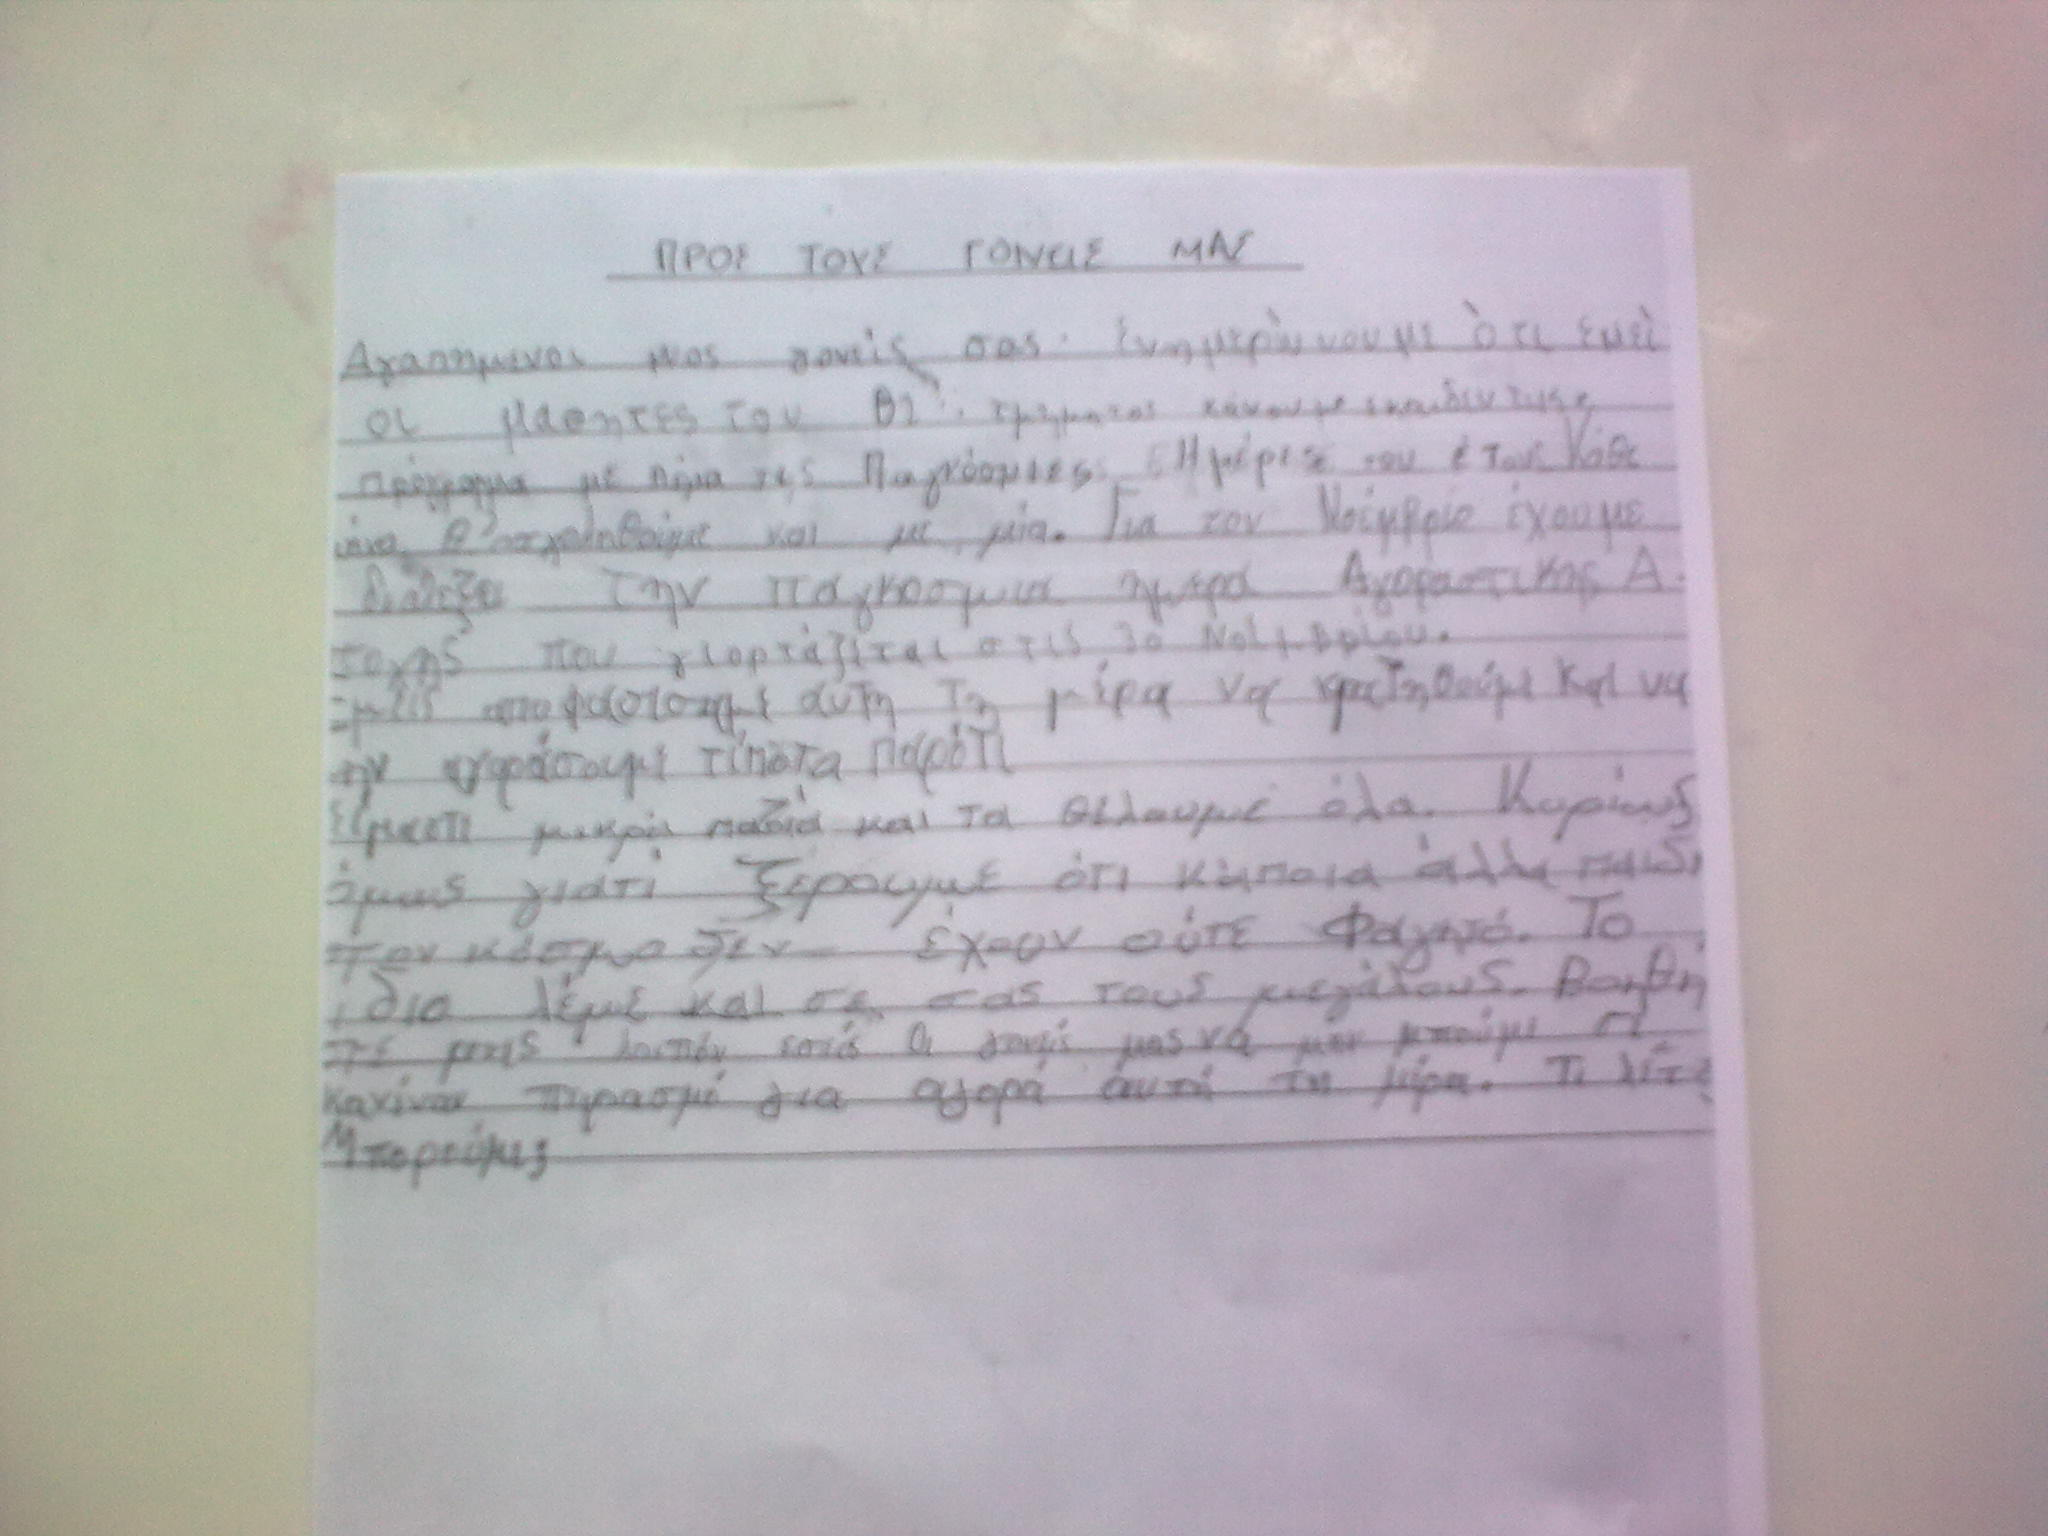 ΠΡΟΣ ΤΟΥΣ ΓΟΝΕΙΣ ΜΑΣ
Αγαπημενοι μας γονείς σας ενημερώνουμε ότι εμεί
οι μαθητες του Β2 τμηματος κάνουμε
πρόγραμμα με θέμα τις Παγκόσμιες Ημέρες του έτους Κάθε
μήνα θ'ασχοληθούμε και με μία. Για τον Νοέμβριο έχουμε
διαλεξει την παγκοσμια ημερα Αγοραστικης Α
ποχης που γιορτάζεται στις 30 Νοέμβρίου.
Εμεις αποφασισαμε αυτη τη μέρα να κρατηθούμε και να
μην αγοράσουμε τίποτα παρότι
είμαστε μικρά παιδιά και τα θέλουμε όλα. Κυρίως
όμως γιατί ξερουμε ότι κάποια άλλα παιδι
τον κόσμο δεν έχουν ούτε Φαγητό. Το
ίδιο λέμε και σε σας τους μεγάλους. Βοηθή
στε μας λοιπόν εσείς οι γονείς μας να μην μπούμε σε
κανέναν πειρασμό για αγορά αυτή τη μέρα. Τι λέτε
Μπορούμε;